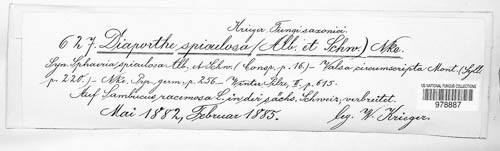 Krieger, Fungi saxonici.
627. Diaporthe spiculosa (Alb. et Schw.) Nke.
Syn. Sphaeria spiculosa Alb. et Schw. (Consp. p. 16) – Valsa circumscripta Mont. (Syll.
p. 220.) – Nke, Pyr. germ. p. 256 – Winter Pilze, II, p. 615.
Auf Sambucus racemosa L. in der sächs. Schweiz, verbreitet.
Mai 1882, Februar 1885. leg. W. Krieger.
US NATIONAL FUNGUS COLLECTIONS
978887